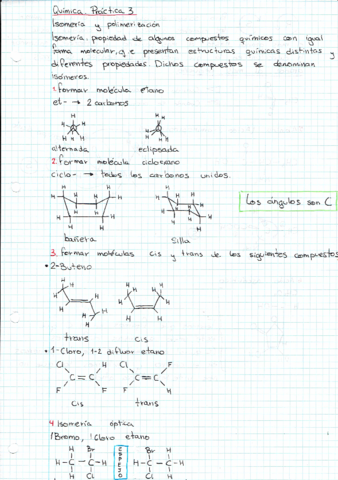 Química Práctica 3
Isomería y polimerización
Isomería: propiedad de algunos compuestos químicos con igual
forma molecular, q e presentan estructuras químicas distintas y
diferentes propiedades. Dichos compuestos se denominan
isómeros.
1. formar molécula etano
et- → 2 carbonos
H H H H H H
H H H H H H
alternada eclipsada
2. formar molécula ciclohexano
ciclo- → todos los carbonos unidos.
Los ángulos son C
bañera silla
3. formar moléculas cis y trans de los siguientes compuestos
• 2-Buteno
trans cis
• 1-Cloro, 1-2 difluor etano
Cl H Cl F
C = C C = C
F F F H
cis trans
4 Isomería óptica
1Bromo, 1Cloro etano
H Br Br H
H-C-C-H H-C-C-H
H Cl Cl H
ESPEJO